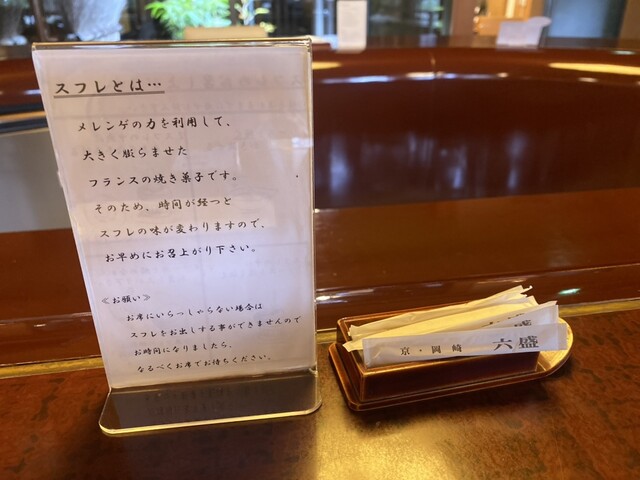 スフレとは…
メレンゲの力を利用して、
大きく膨らませた
フランスの焼き菓子です。
そのため、時間が経つと
スフレの味が変わりますので、
お早めにお召上がり下さい。
≪お願い≫
お席にいらっしゃらない場合は
スフレをお出しする事ができませんので
お時間になりましたら、
なるべくお席でお待ちください。
京・岡崎 六盛